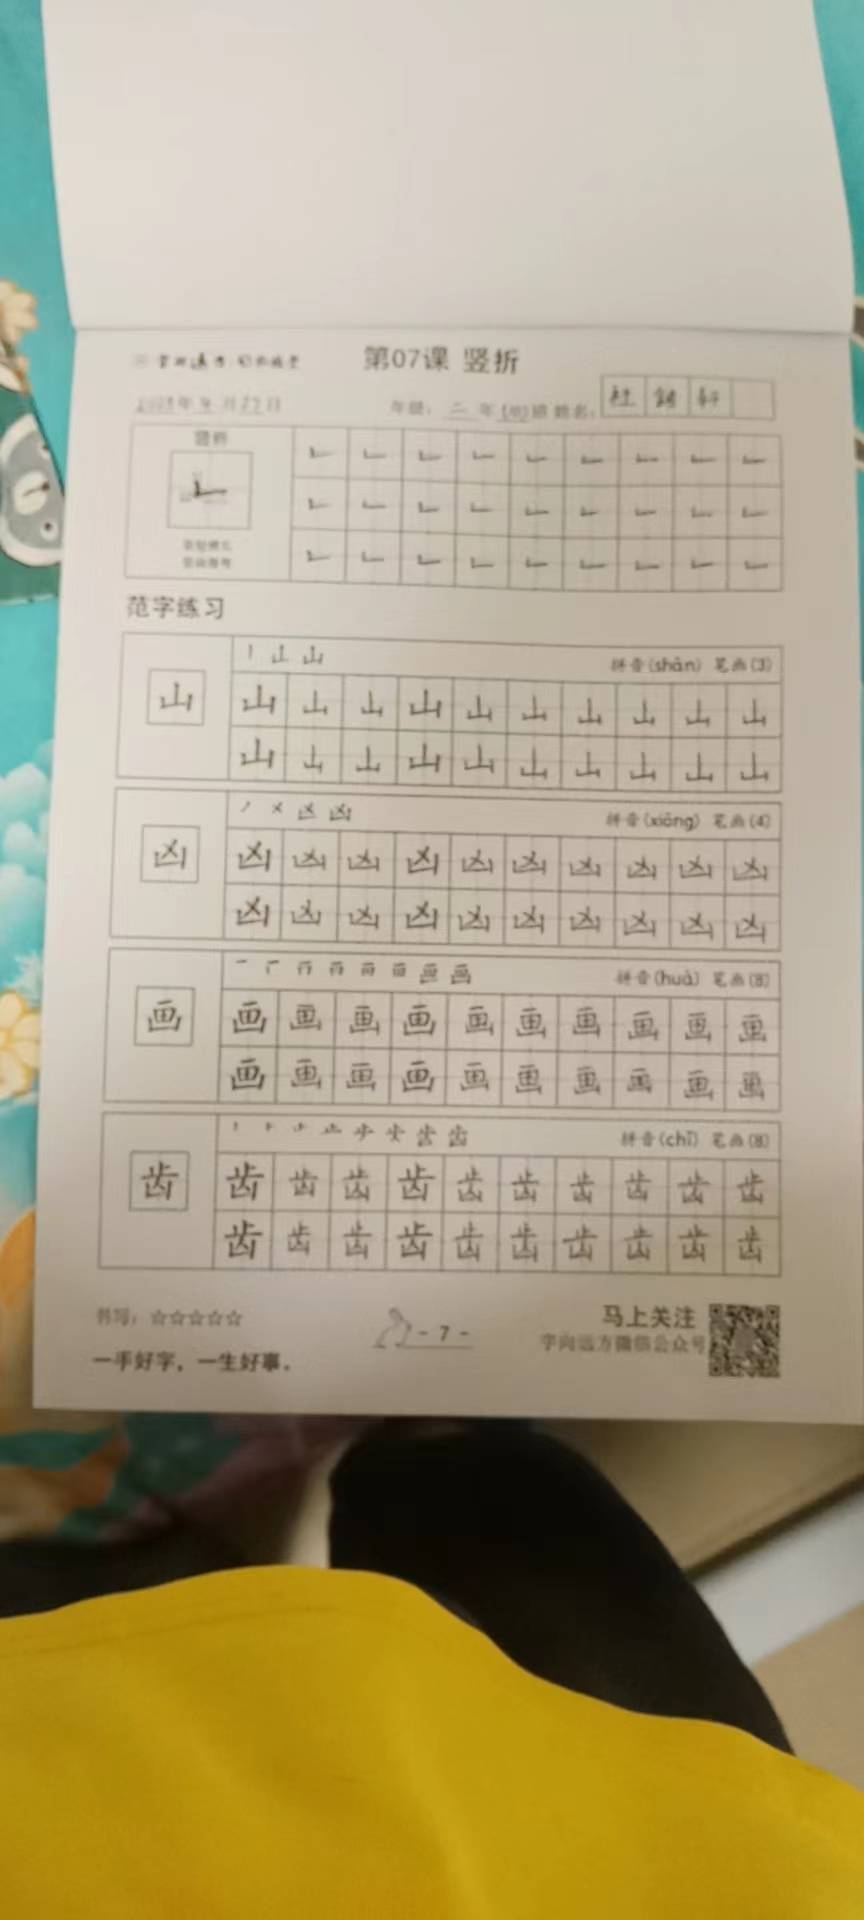 第07课 竖折
年级：二年(四)班 姓名：
竖折
范字练习
山 拼音(shān) 笔画(3)
山 山 山 山 山 山 山 山 山 山 山
山 山 山 山 山 山 山 山 山 山
凶 拼音(xiōng) 笔画(4)
凶 凶 凶 凶 凶 凶 凶 凶 凶 凶 凶
凶 凶 凶 凶 凶 凶 凶 凶 凶 凶
画 拼音(huà) 笔画(8)
画 画 画 画 画 画 画 画 画 画 画
画 画 画 画 画 画 画 画 画 画
齿 拼音(chǐ) 笔画(8)
齿 齿 齿 齿 齿 齿 齿 齿 齿 齿 齿
齿 齿 齿 齿 齿 齿 齿 齿 齿 齿
书写：☆☆☆☆☆
- 7 -
马上关注
字向远方微信公众号
一手好字，一生好事。